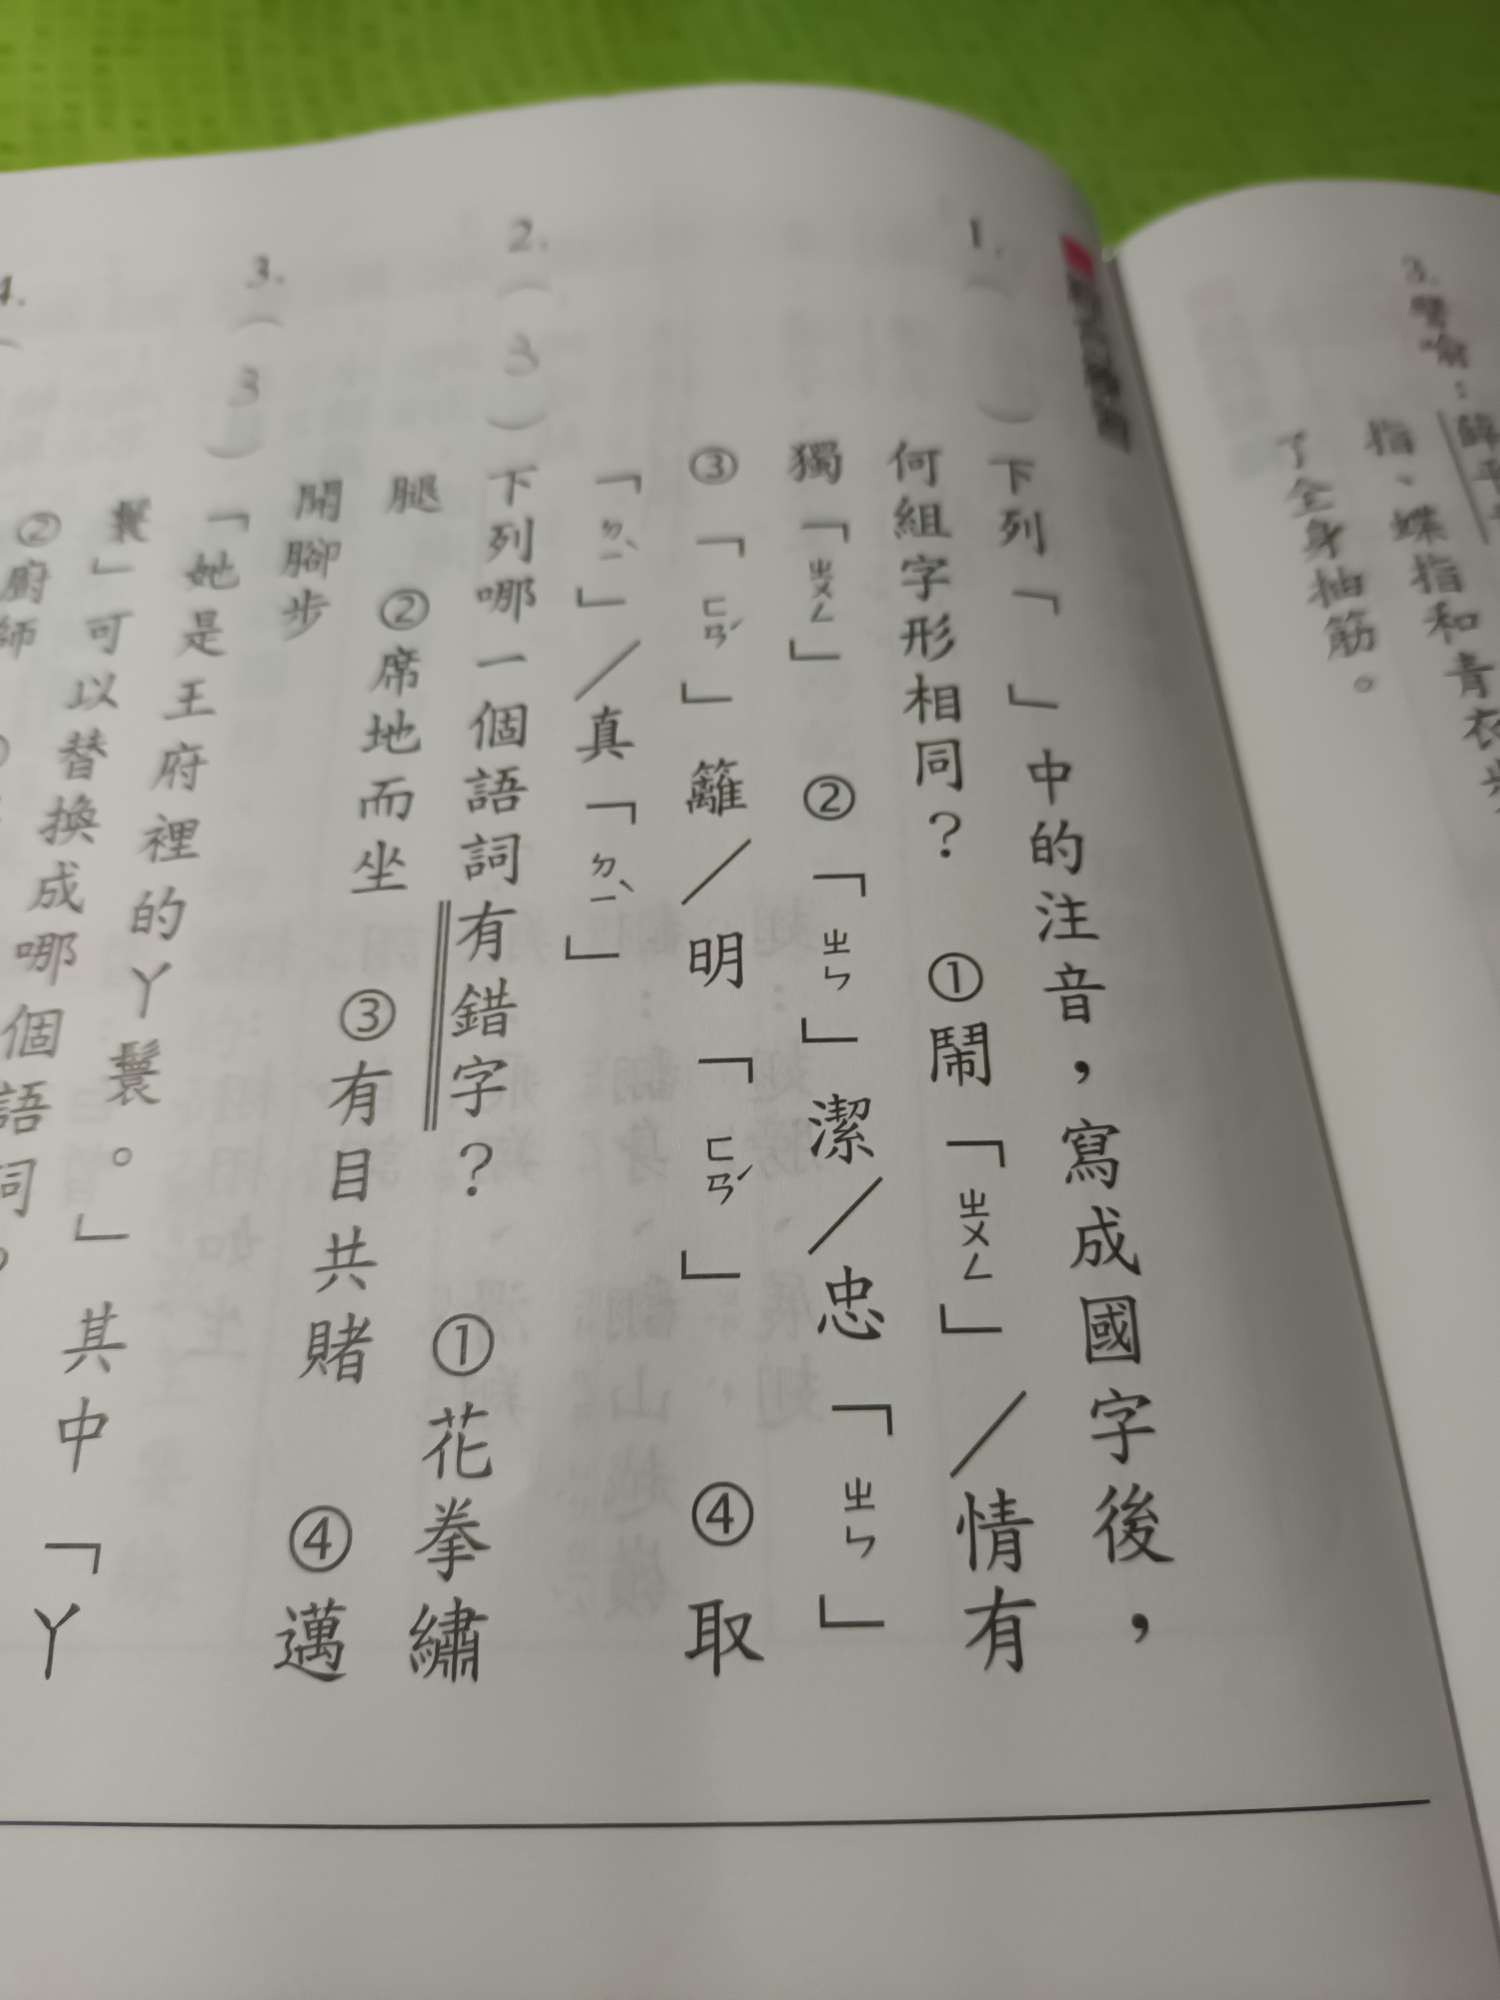 3.譬喻：
指、蝶指和青衣
了全身抽筋。
1.（ ）下列「 」中的注音，寫成國字後，
何組字形相同？ ①鬧「ㄓㄨㄥ」／情有
獨「ㄓㄨㄥ」 ②「ㄓㄣ」潔／忠「ㄓㄣ」
③「ㄈㄢˊ」籬／明「ㄈㄢˊ」 ④取
「ㄉㄧˋ」／真「ㄉㄧˋ」
2.（3）下列哪一個語詞有錯字？ ①花拳繡
腿 ②席地而坐 ③有目共賭 ④邁
開腳步
3.（3）「她是王府裡的丫鬟。」其中「丫
鬟」可以替換成哪個語詞？
②廚師
4.（